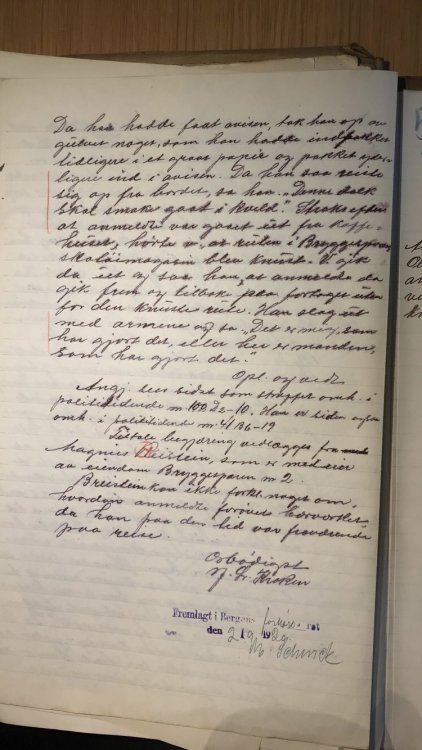 Da han hadde faat avisen, tok han op av
gulvet noget, som han hadde indpakket
tidligere i et graat papir og pakket yder-
ligere ind i avisen. Da han saa reiste
sig op fra bordet, sa han: "Denne dolk
skal smake godt i kveld". Straks efter
at anmeldte var gaaet ut fra kaffe-
huset, hørte v., at ruten i Bryggesporens
skotøimagasin blev knust. V. gik
da ut og saa han, at anmeldte da
gik frem og tilbake paa fortoget uten-
for den knuste rute. Han slog ut
med armene og sa "Det er mig, som
har gjort det, eller her er manden,
som har gjort det."
Opl. og vedt.
Angj. sees sidst som stoppet omh. i
politidende nr 102 22-10. Han er siden ogsaa
omh. i politidende nr. 4/36-19
begjæring vedlægges fra
Magnus Breistein, som er med eier
av eiendom Bryggesporen nr 2.
Breistein kan ikke forkl. noget om,
hvordan anmeldte forøvede hærverket,
da han paa den tid var fraværende
paa reise.
Ærbødigst
Kroken
Fremlagt i Bergens forhørs-ret
den 2/9 1929.
Schrick